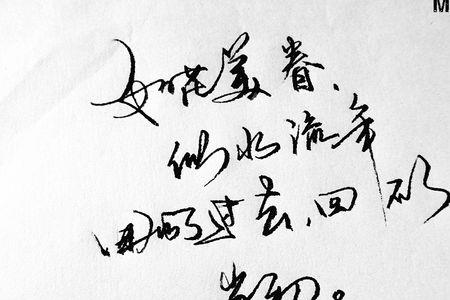 M
如花美眷、
似水流年
回的过去,回不
当初。